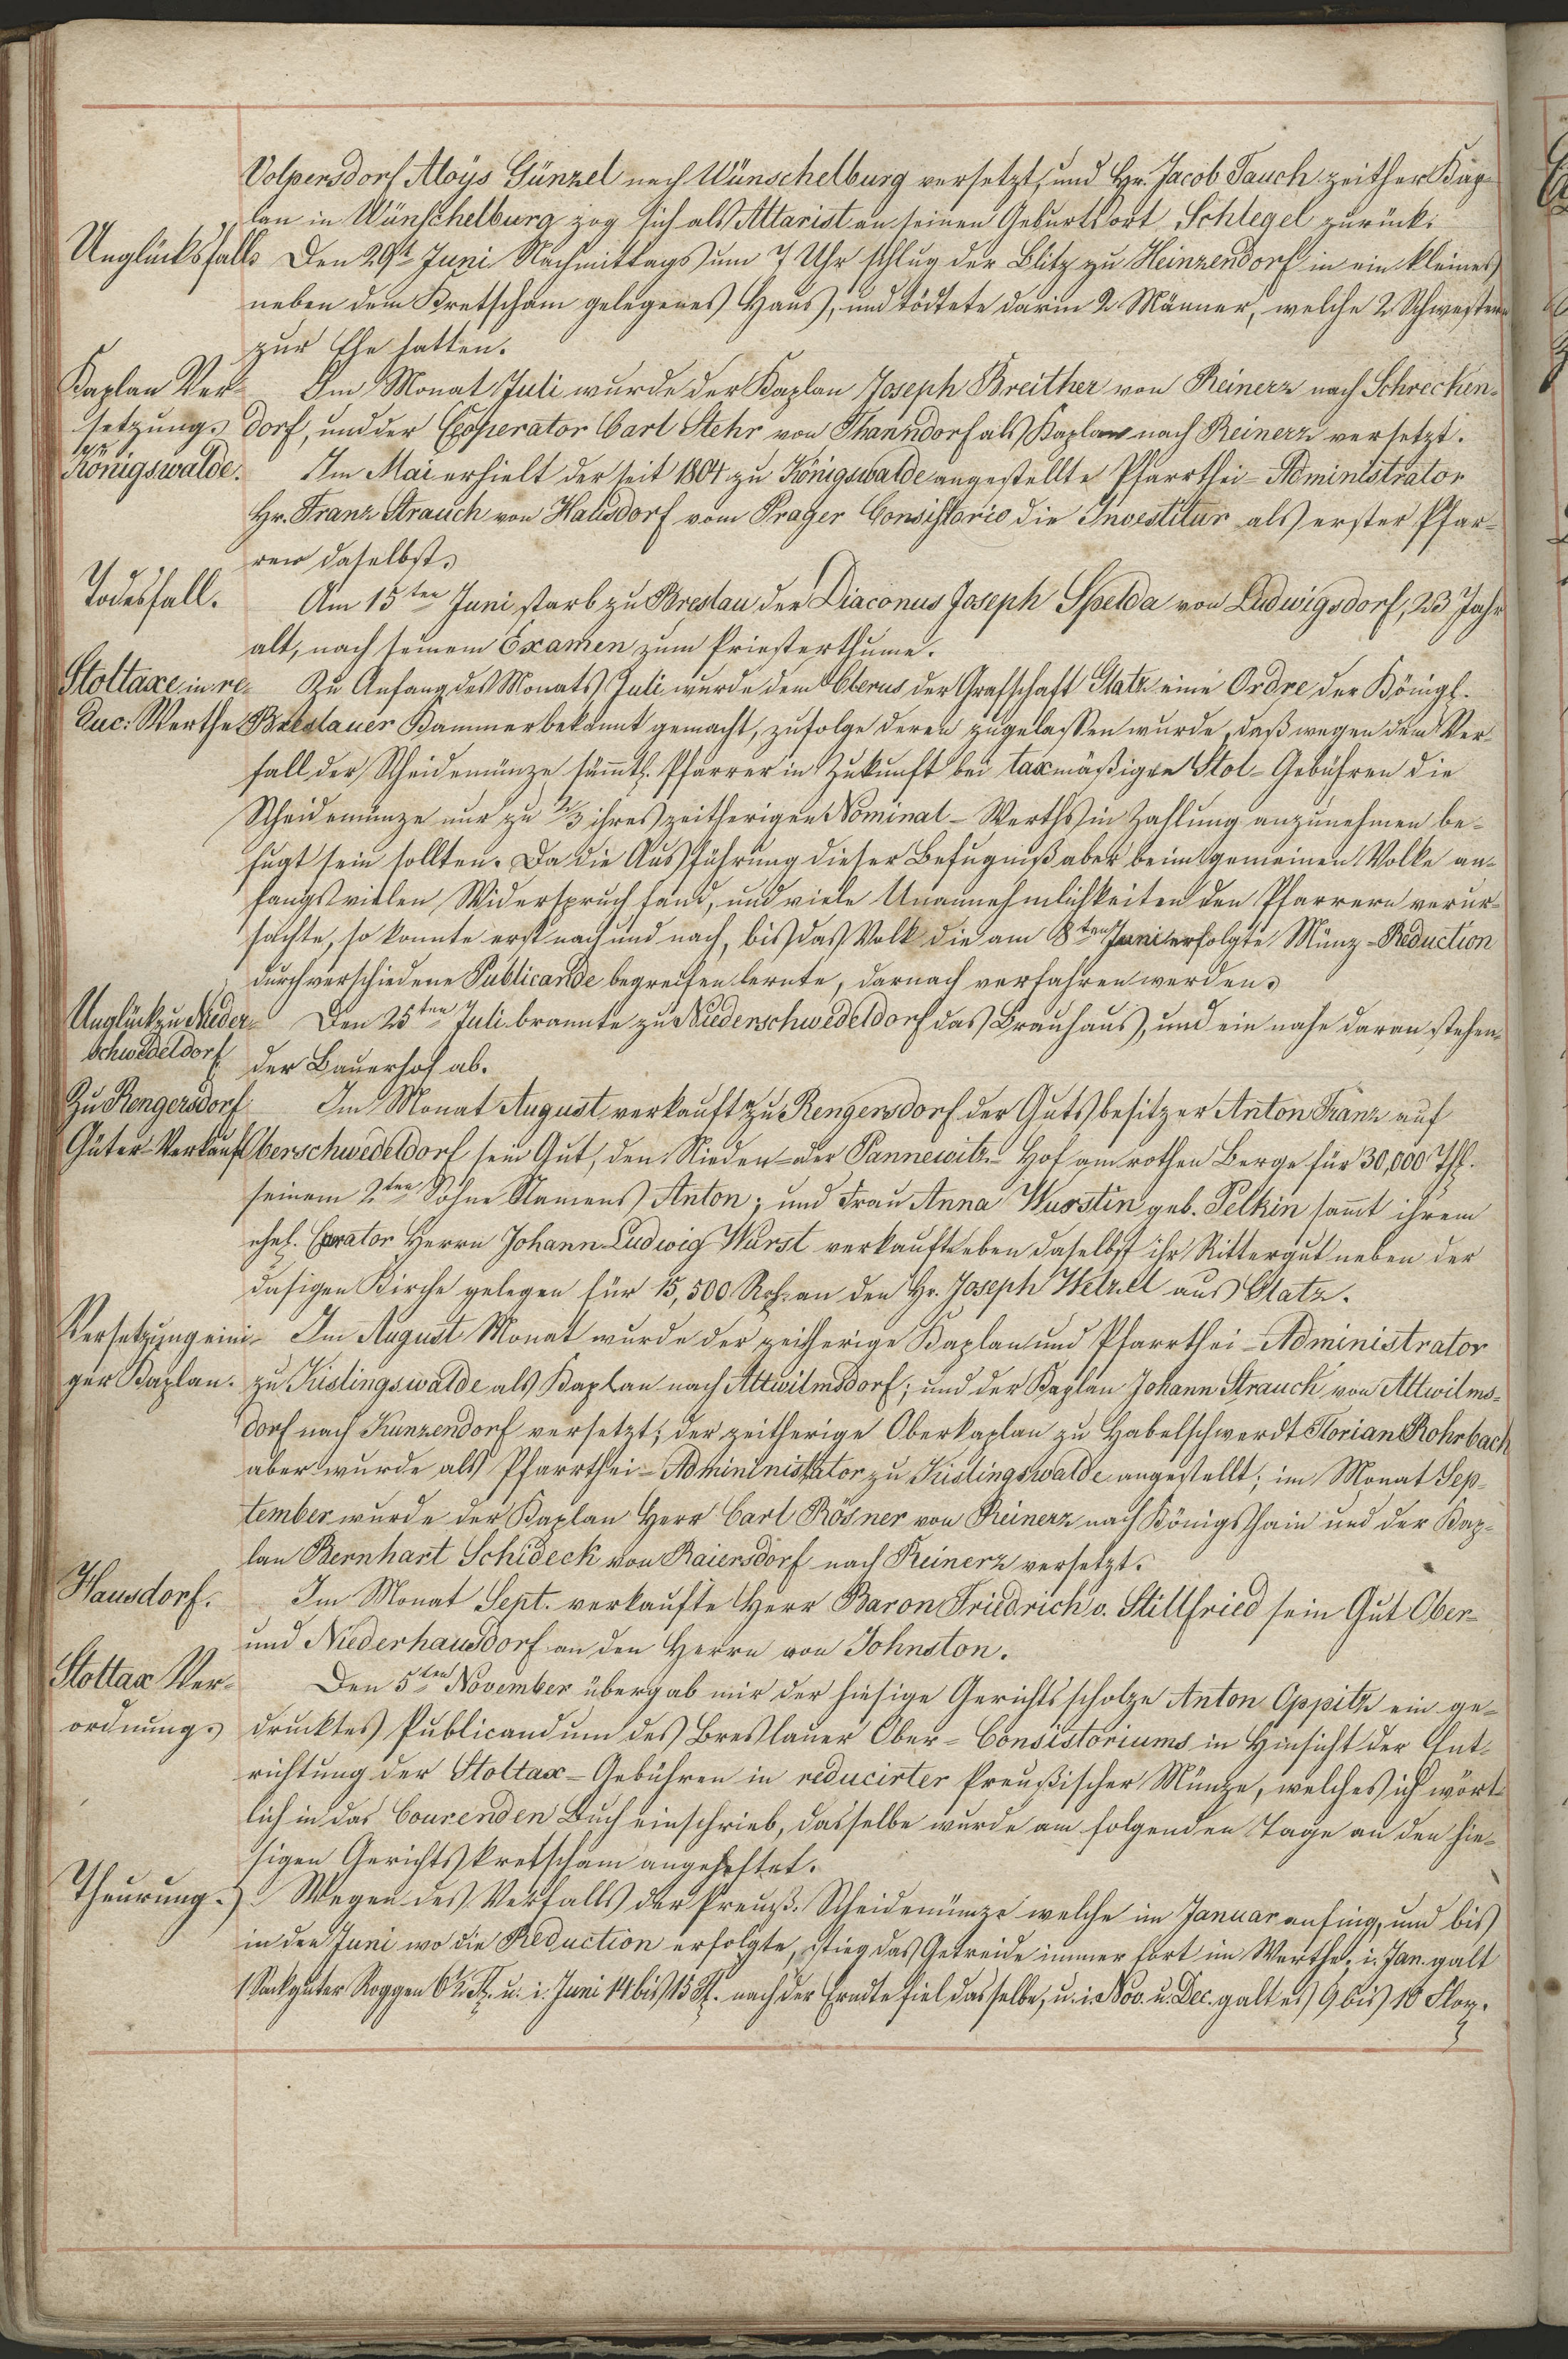 Volpersdorf Aloys Günzel nach Wünschelburg versetzt, und Hr. Jacob Tauch zeither Kap-
lan in Wünschelburg zog sich als Altarist an seinen Geburtsort Schlegel zurück.
Unglücksfall. Den 29t Juni Nachmittags um 7 Uhr schlug der Blitz zu Heinzendorf in ein kleines
neben dem Kretscham gelegenes Haus, und tödtete darin 2 Männer, welche 2 Schwestern
zur Ehe hatten.
Kaplan Ver- Im Monat Juli wurde der Kaplan Joseph Breither von Reinerz nach Schrecken-
setzung. dorf, und der Cooperator Carl Stehr von Thanndorf als Kaplan nach Reinerz versetzt.
zu Königswalde. Im Mai erhielt der seit 1804 zu Königswalde angestellte Pfarrthei-Administrator
Hr. Franz Strauch von Hausdorf vom Prager Consistorio die Investitur als erster Pfar-
rer daselbst.
Todesfall. Am 15ten Juni starb zu Breslau der Diaconus Joseph Spelda von Ludwigsdorf, 23 Jahr
alt, nach seinem Examen zum Priesterthume.
Stoltaxe in re- Zu Anfang des Monats Juli wurde dem Clerus der Grafschaft Glatz eine Ordre der Königl.
duc: Werthe Breslauer Kammer bekannt gemacht, zufolge deren zugelassen wurde, daß wegen dem Ver-
fall der Scheidemünze sämmtl. Pfarrer in Zukunft bei taxmäßigen Stol-Gebühren die
Scheidemünze nur zu 2/3 ihres zeitherigen Nominal-Werths in Zahlung anzunehmen be-
fugt sein sollten. Da die Ausführung dieser Befugniß aber beim gemeinen Volke an-
fangs vielen Widerspruch fand, und viele Unannehmlichkeiten den Pfarrern verur-
sachte, so konnte erst nach und nach, bis das Volk die am 8ten Juni erfolgte Münz-Reduction
durch verschiedene Publicande begreifen lernte, darnach verfahren werden.
Unglück zu Nieder- Den 25ten Juli brannte zu Niederschwedeldorf das Brauhaus, und ein nahe daran stehen-
schwedeldorf der Bauerhof ab.
Zu Rengersdorf Im Monat August verkaufte zu Rengersdorf der Gutsbesitzer Anton Franz auf
Güter-Verkauf Oberschwedeldorf sein Gut, den Nieder- oder Pannewitz-Hof am rothen Berge für 30,000 Thl.
seinem 2ten Sohne Namens Anton; und Frau Anna Wurstin geb. Pelkin samt ihrem
ehel. Curator Herrn Johann Ludwig Wurst verkaufte eben daselbst ihr Rittergut neben der
dasigen Kirche gelegen für 15,500 Rth. an den Hr. Joseph Wetzel aus Glatz.
Versetzung eini- Im August Monat wurde der zeitherige Kaplan und Pfarrthei-Administrator
ger Kaplan. zu Kislingswalde als Kaplan nach Altwilmsdorf; und der Kaplan Johann Strauch von Altwilms-
dorf nach Kunzendorf versetzt; der zeitherige Oberkaplan zu Habelschwerdt Florian Rohrbach
aber wurde als Pfarrthei-Admininistator zu Kislingswalde angestellt; im Monat Sep-
tember wurde der Kaplan Herr Carl Rösner von Reinerz nach Königshain und der Kap-
lan Bernhart Schideck von Raiersdorf nach Reinerz versetzt.
Hausdorf. Im Monat Sept. verkaufte Herr Baron Friedrich v. Stillfried sein Gut Ober-
und Niederhausdorf an den Herrn von Johnston.
Stoltax Ver- Den 5ten November übergab mir der hiesige Gerichtsscholze Anton Oppitz ein ge-
ordnung. drucktes Publicandum des Breslauer Ober-Consistoriums in Hinsicht der Ent-
richtung der Stoltax-Gebühren in reducirter Preußischer Münze, welches ich wört-
lich in das Courenden Buch einschrieb, dasselbe wurde am folgenden Tage an den hie-
sigen Gerichtskretscham angeheftet.
Theurung. Wegen des Verfalls der Preuß. Scheidemünze welche im Januar anfing, und bis
in den Juni wo die Reduction erfolgte, stieg das Getreide immer fort im Werthe; i. Jan. galt
1 Sack guter Roggen 6½ Fl. u. i. Juni 14 bis 15 Fl. nach der Erndte fiel dasselbe, u. i. Nov. u. Dec. galt es 9 bis 10 Flor.